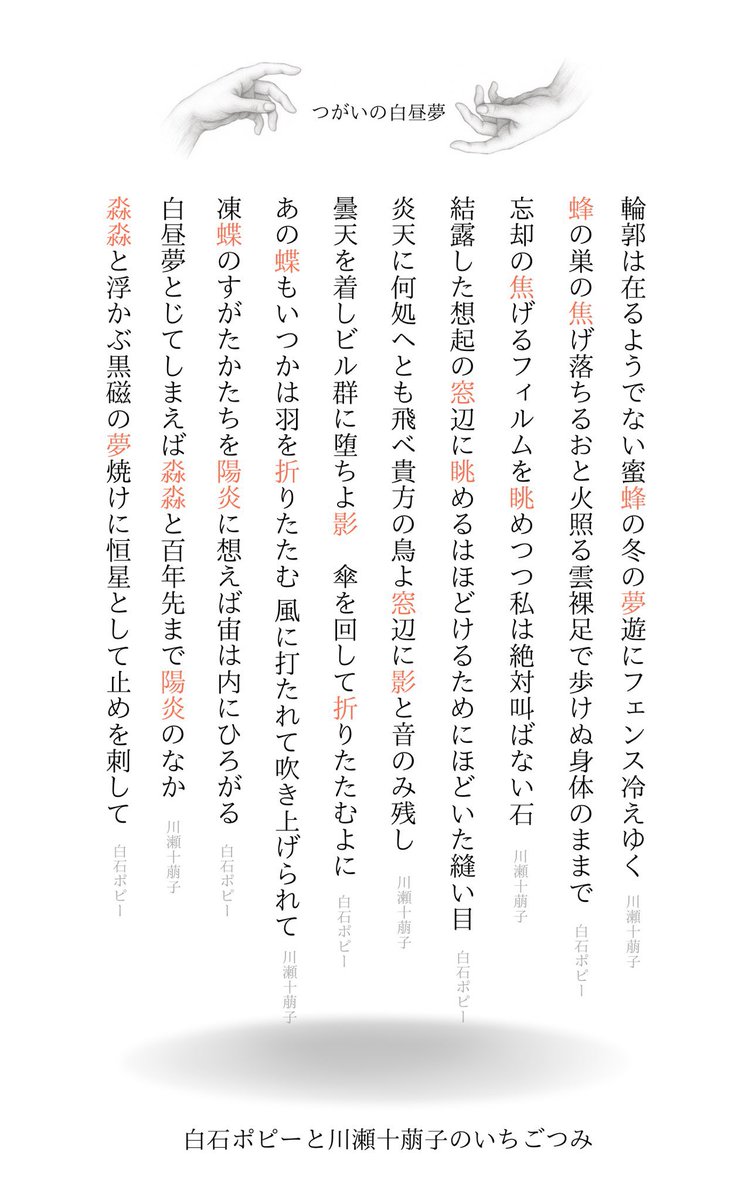 つがいの白昼夢
輪郭は在るようでない蜜蜂の冬の夢遊にフェンス冷えゆく
川瀬十萠子
蜂の巣の焦げ落ちるおと火照る雲裸足で歩けぬ身体のままで
白石ポピー
忘却の焦げるフィルムを眺めつつ私は絶対叫ばない石
川瀬十萠子
結露した想起の窓辺に眺めるはほどけるためにほどいた縫い目
白石ポピー
炎天に何処へとも飛べ貴方の鳥よ窓辺に影と音のみ残し
川瀬十萠子
曇天を着しビル群に堕ちよ影　傘を回して折りたたむよに
白石ポピー
あの蝶もいつかは羽を折りたたむ 風に打たれて吹き上げられて
川瀬十萠子
凍蝶のすがたかたちを陽炎に想えば宙は内にひろがる
白石ポピー
白昼夢とじてしまえば淼淼と百年先まで陽炎のなか
川瀬十萠子
淼淼と浮かぶ黒磁の夢焼けに恒星として止めを刺して
白石ポピー
白石ポピーと川瀬十萠子のいちごつみ